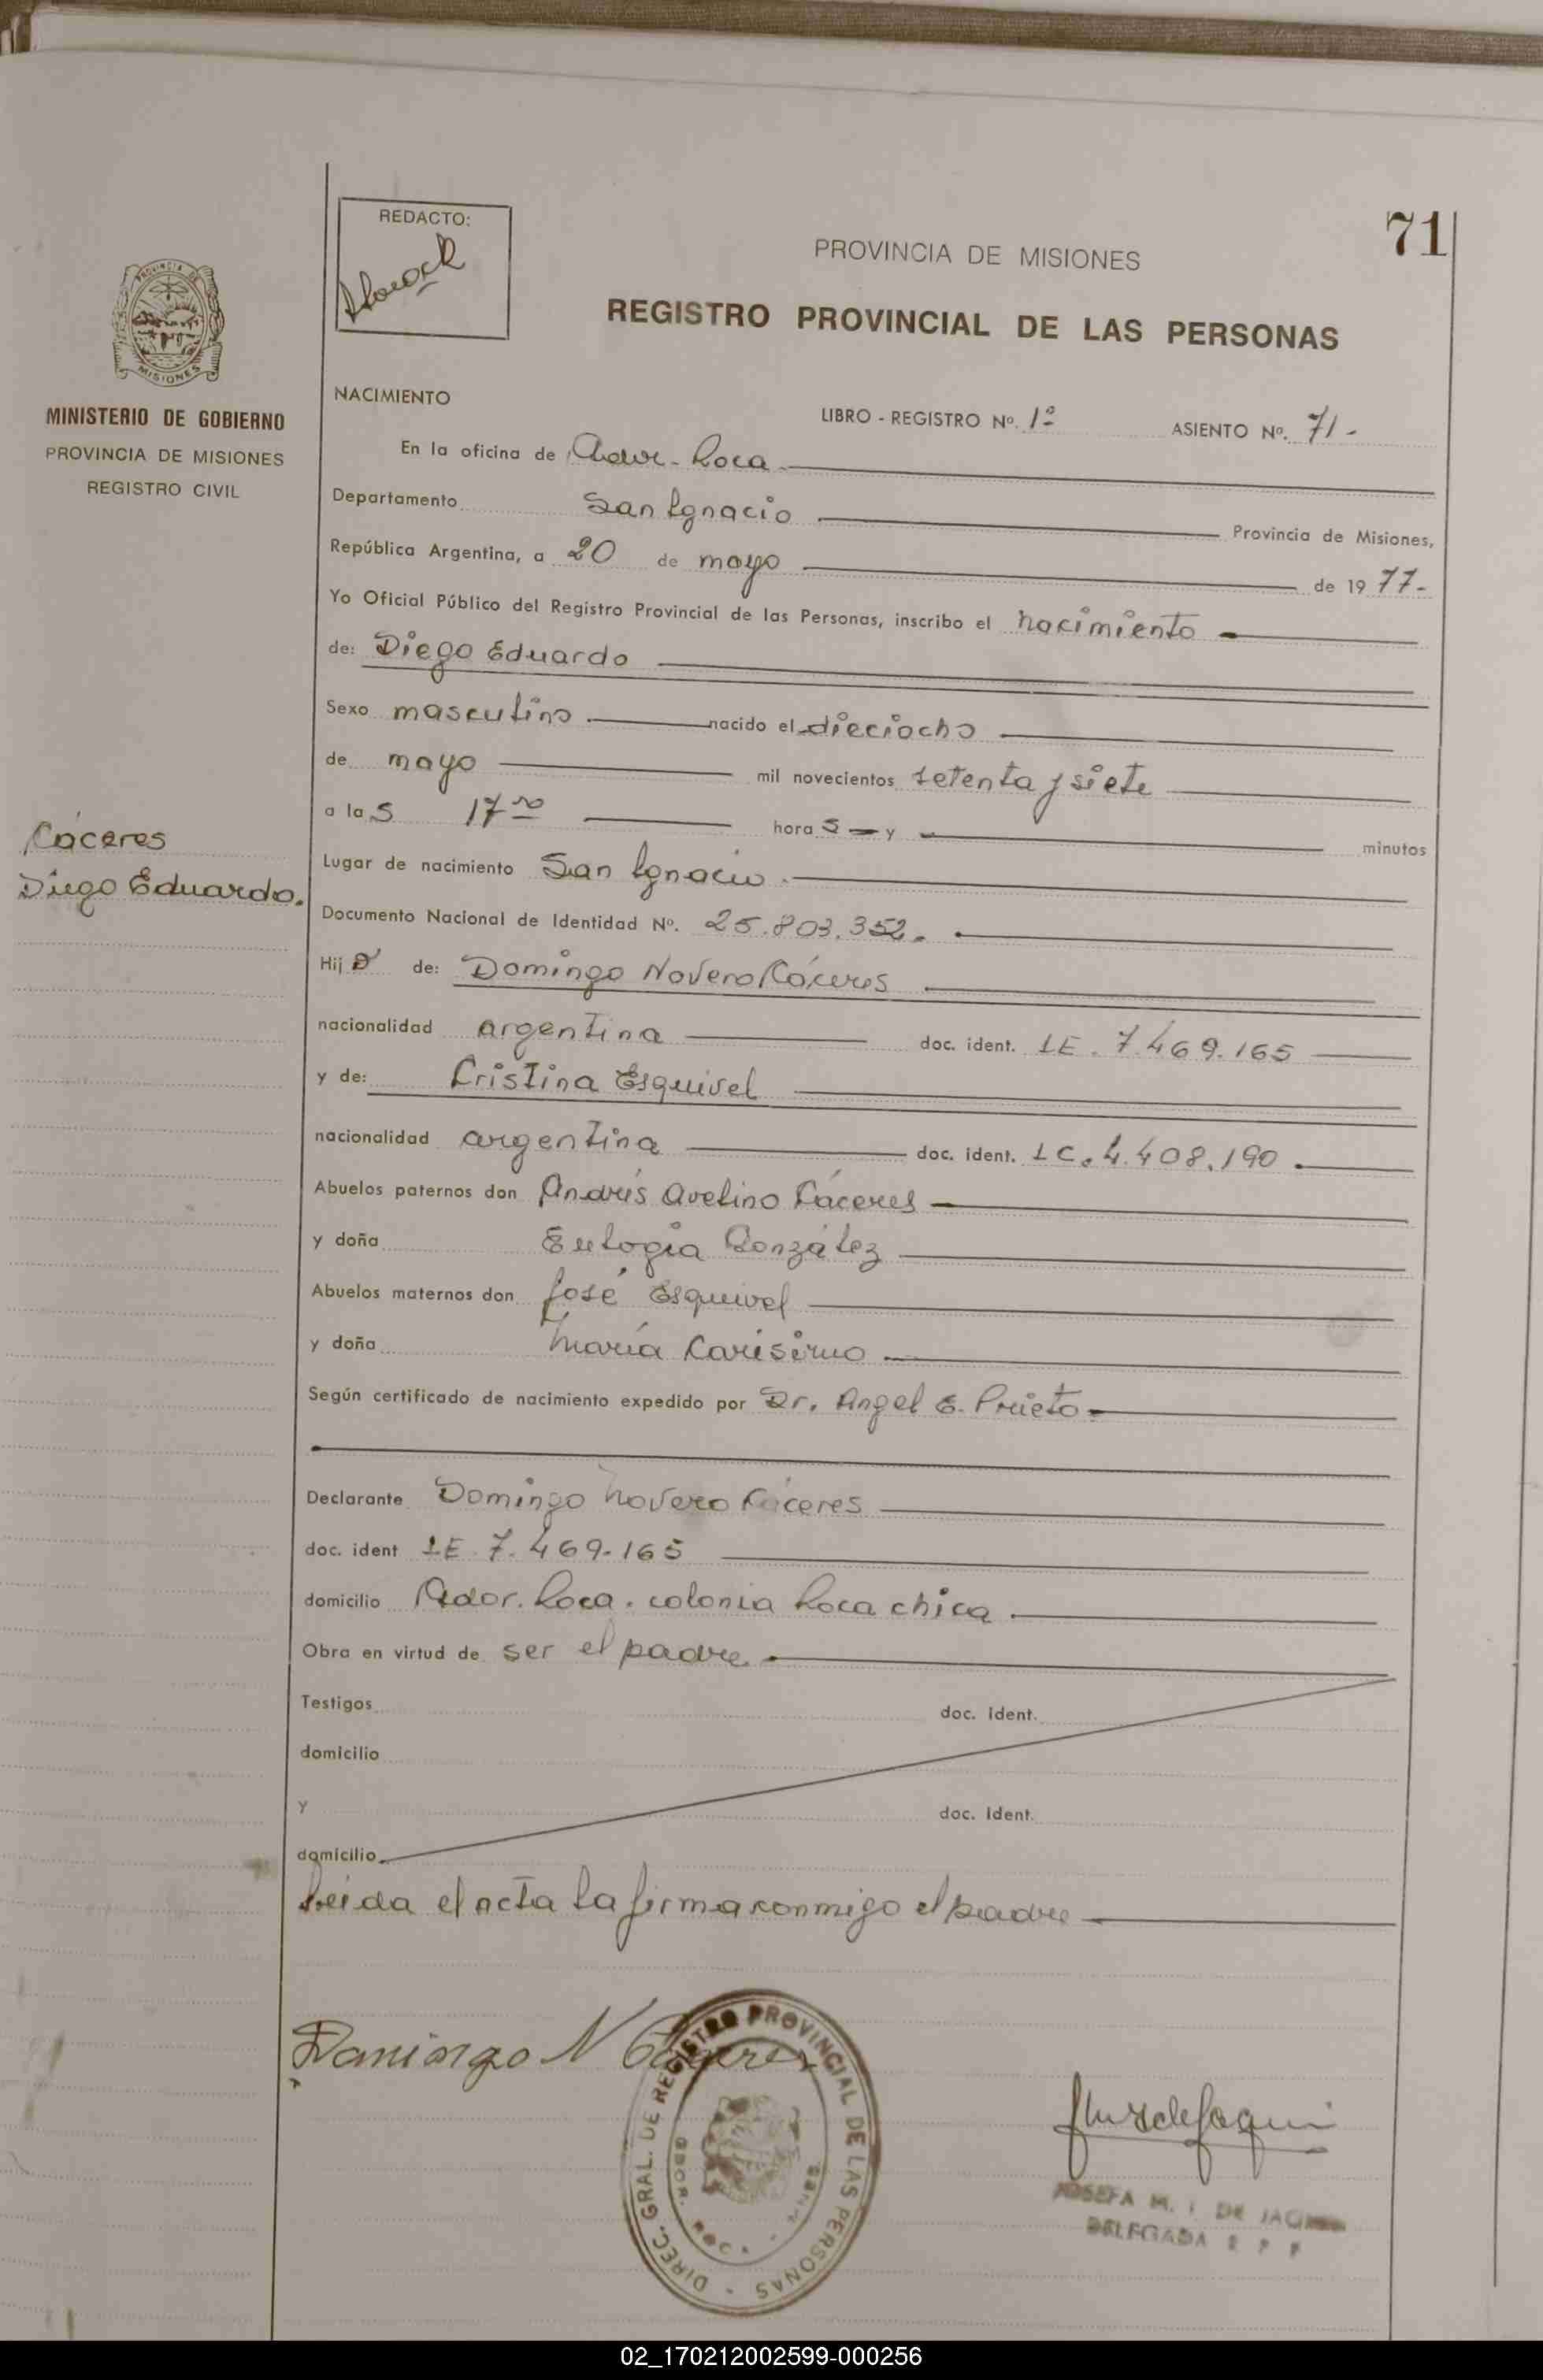 71
REDACTO:
PROVINCIA DE MISIONES
REGISTRO PROVINCIAL DE LAS PERSONAS
PROVINCIA DE
MISIONES
MINISTERIO DE GOBIERNO
PROVINCIA DE MISIONES
REGISTRO CIVIL
NACIMIENTO
LIBRO - REGISTRO Nº. 1º ASIENTO Nº. 71-
En la oficina de Roca
Departamento San Ignacio Provincia de Misiones,
República Argentina, a 20 de mayo de 1977-
Yo Oficial Público del Registro Provincial de las Personas, inscribo el nacimiento
de: Diego Eduardo
Sexo masculino nacido el dieciocho
de mayo mil novecientos setenta y siete
a las 17 horas y minutos
Cáceres
Diego Eduardo.
Lugar de nacimiento San Ignacio.
Documento Nacional de Identidad Nº. 25.803.352.
Hijo de: Domingo Novero Cáceres
nacionalidad argentina doc. ident. LE. 7.469.165
y de: Cristina Esquivel
nacionalidad argentina doc. ident. LC. 4.408.190.
Abuelos paternos don Andrés Avelino Cáceres
y doña Eulogia González
Abuelos maternos don José Esquivel
y doña María Carísimo
Según certificado de nacimiento expedido por Dr. Angel E. Prieto
Declarante Domingo Novero Cáceres
doc. ident LE. 7.469.165
domicilio Gdor. Roca. colonia Roca chica.
Obra en virtud de ser el padre
Testigos doc. ident.
domicilio
y doc. ident.
domicilio
Leída el acta la firma conmigo el padre
Domingo N Cáceres
DIREC. GRAL. DE REGISTRO PROVINCIAL DE LAS PERSONAS
GBOR. ROCA
JOSEFA M. I DE
DELEGADA
02_170212002599-000256